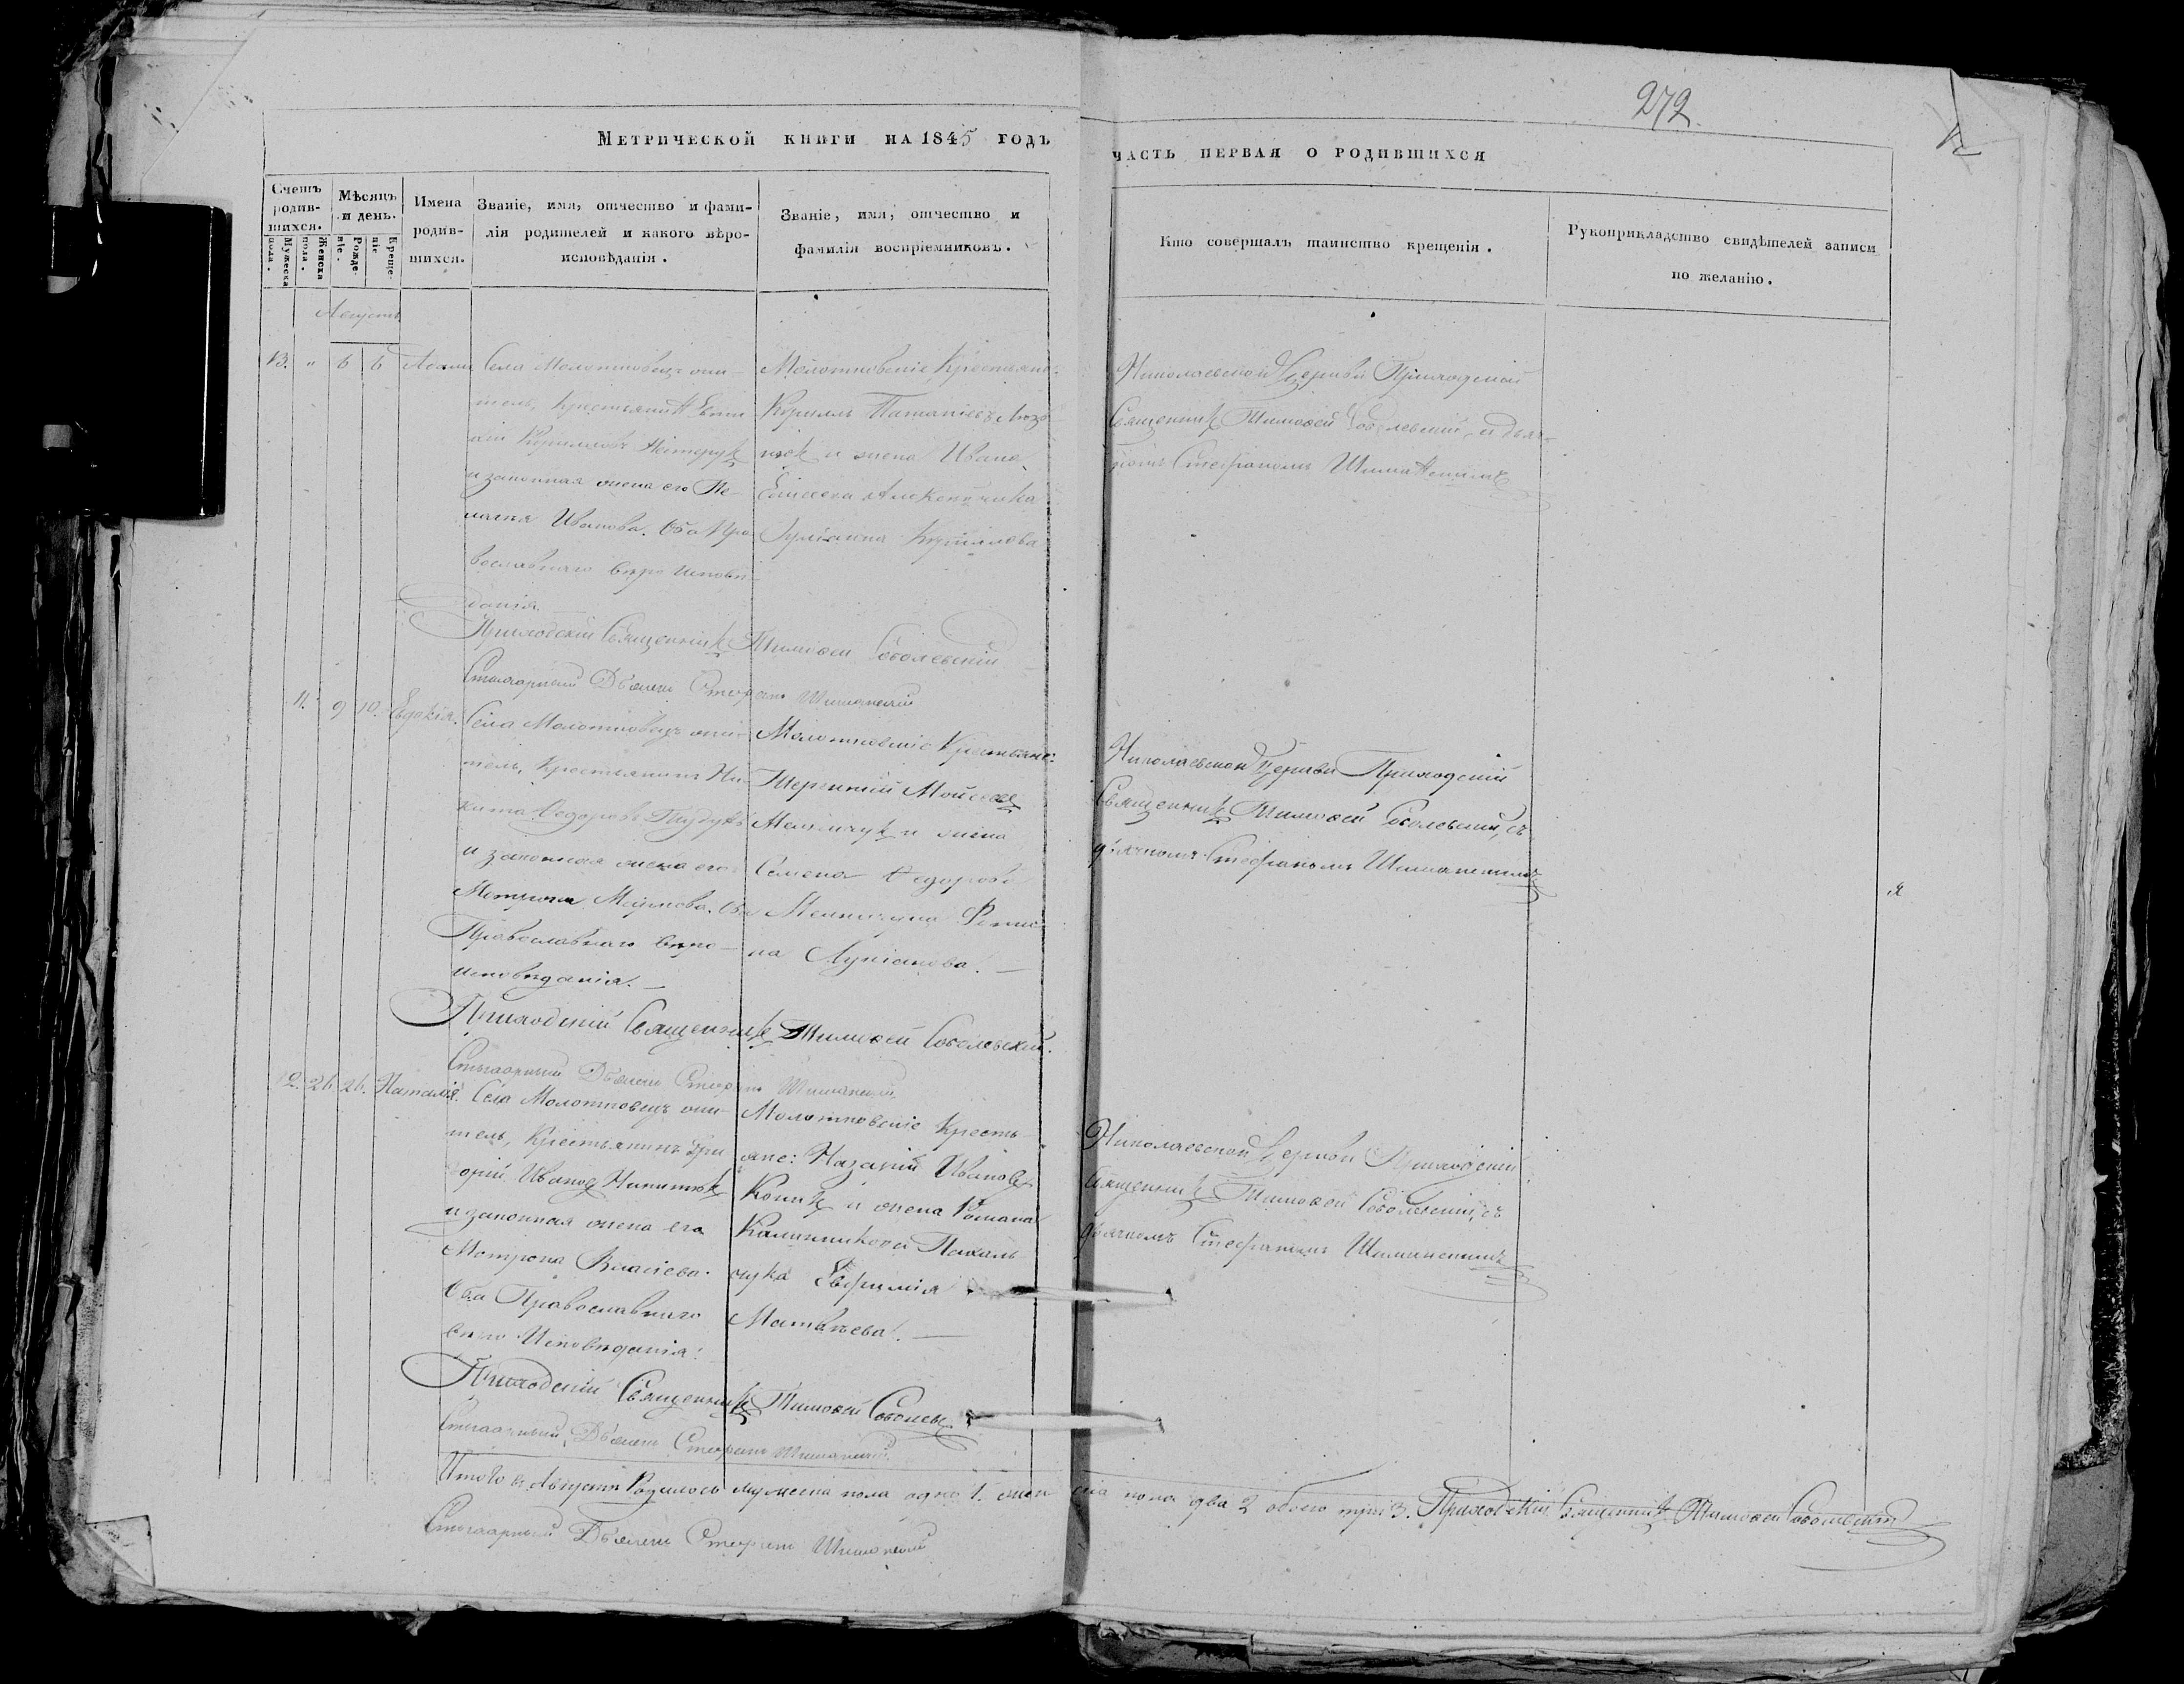 272.
Метрической книги на 1845 годъ
часть первая о родившихся
Счетъ родив-шихся.
Мужеска пола.
Женска пола.
Мѣсяцъ и день.
Рожде-ніе.
Креще-ніе
Имена родив-шихся.
Званіе, имя, отчество и фами-
лія родителей и какого вѣро-
исповѣданія.
Званіе, имя, отчество и
фамилія воспріемниковъ.
Кто совершалъ таинство крещенія.
Рукоприкладство свидѣтелей записи
по желанію.
Августъ
13. " 6 6
Села Молотковецъ жи-
тель, Крестьянинъ
Кирилловъ Нестерук
и законная жена его Пе-
лагея Иванова. Оба Пра
вославнаго вѣро исповѣ-
данія.
Молотковскіе Крестьяне:
Кириллъ
и жена Ивана
Кириллова
Николаевской Церкви Приходскій
Священник Тимофей Соболевскій, и дьяч-
комъ Стефаномъ Шиманскимъ
Приходскій Священник Тимофей Соболевскій
Дьячекъ Стефанъ Шиманскій
11. 9 10. Евдокія.
Села Молотковецъ жи-
тель, Крестьянинъ Ни-
кита Федоровъ
и законная жена его
Мотрона Маркова. Оба
Православнаго вѣро-
исповѣданія.
Молотковскіе Крестьяне:
Терентій Моисеев
Мельничук и жена
Семена Федорова
Мельничука
на Лукіанова.
Николаевской Церкви Приходскій
Священник Тимофей Соболевскій, съ
дьячкомъ Стефаномъ Шиманскимъ
Приходскій Священник Тимофей Соболевскій.
Дьячекъ Стефанъ Шиманскій
12. 26. 26. Наталія.
Села Молотковецъ жи-
тель, Крестьянинъ Гри
горій Иванов Никитюк
и законная жена его
Мотрона Власіева.
Оба Православнаго
вѣро Исповѣданія.
Молотковскіе Кресть
яне: Назарій Иванов
и жена Романа
Калинникова Михаль
чука Евфимія
Матвѣева.
Николаевской Церкви Приходскій
Священник Тимофей Соболевскій, съ
дьячкомъ Стефаномъ Шиманскимъ
Приходскій Священник Тимофей Соболевс
Дьячекъ Стефанъ Шиманскій
Итого въ Августѣ Родилось мужеска пола одно 1. жен ска пола два 2 обоего три 3. Приходскій Священник Тимофей Соболевскій
Дьячекъ Стефанъ Шиманскій